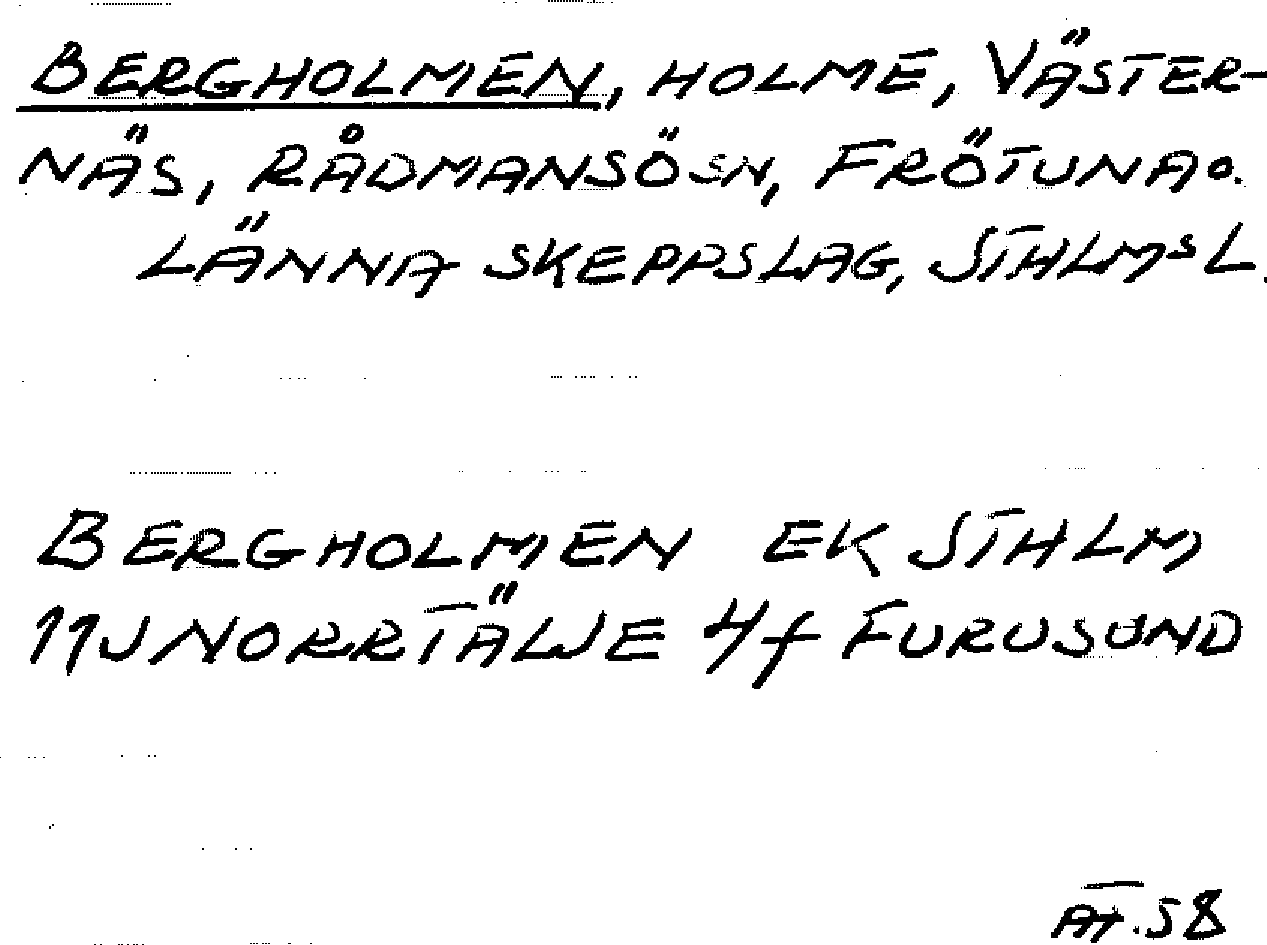 BERGHOLMEN, HOLME, VÄSTER-
NÄS, RÅDMANSÖ SN, FRÖTUNA O.
LÄNNA SKEPPSLAG, STHLMS L.
BERGHOLMEN EK STHLM
11J NORRTÄLJE 4f FURUSUND
AT.58